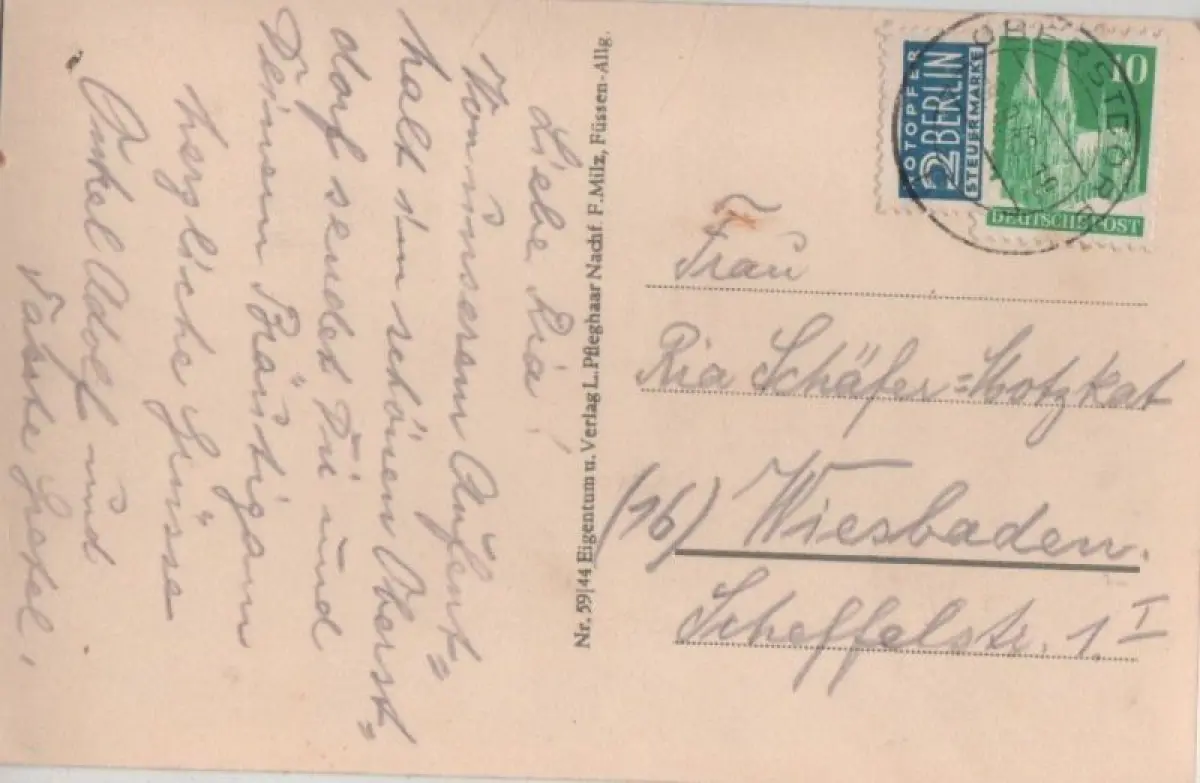 Liebe Ria!
Von unserem Aufent=
halt im schönen Oberst=
dorf sendet Dir und
Deinem Bräutigam
herzliche Grüsse
Onkel Adolf und
Tante Gretel.
Nr. 59/44 Eigentum u. Verlag L. Pfleghaar Nachf. F. Milz, Füssen-Allg.
NOTOPFER
2 BERLIN
STEUERMARKE
10
DEUTSCHE POST
OBERSTDORF
Frau
Ria Schäfer=Motzkat
(16) Wiesbaden.
Scheffelstr. 1.I